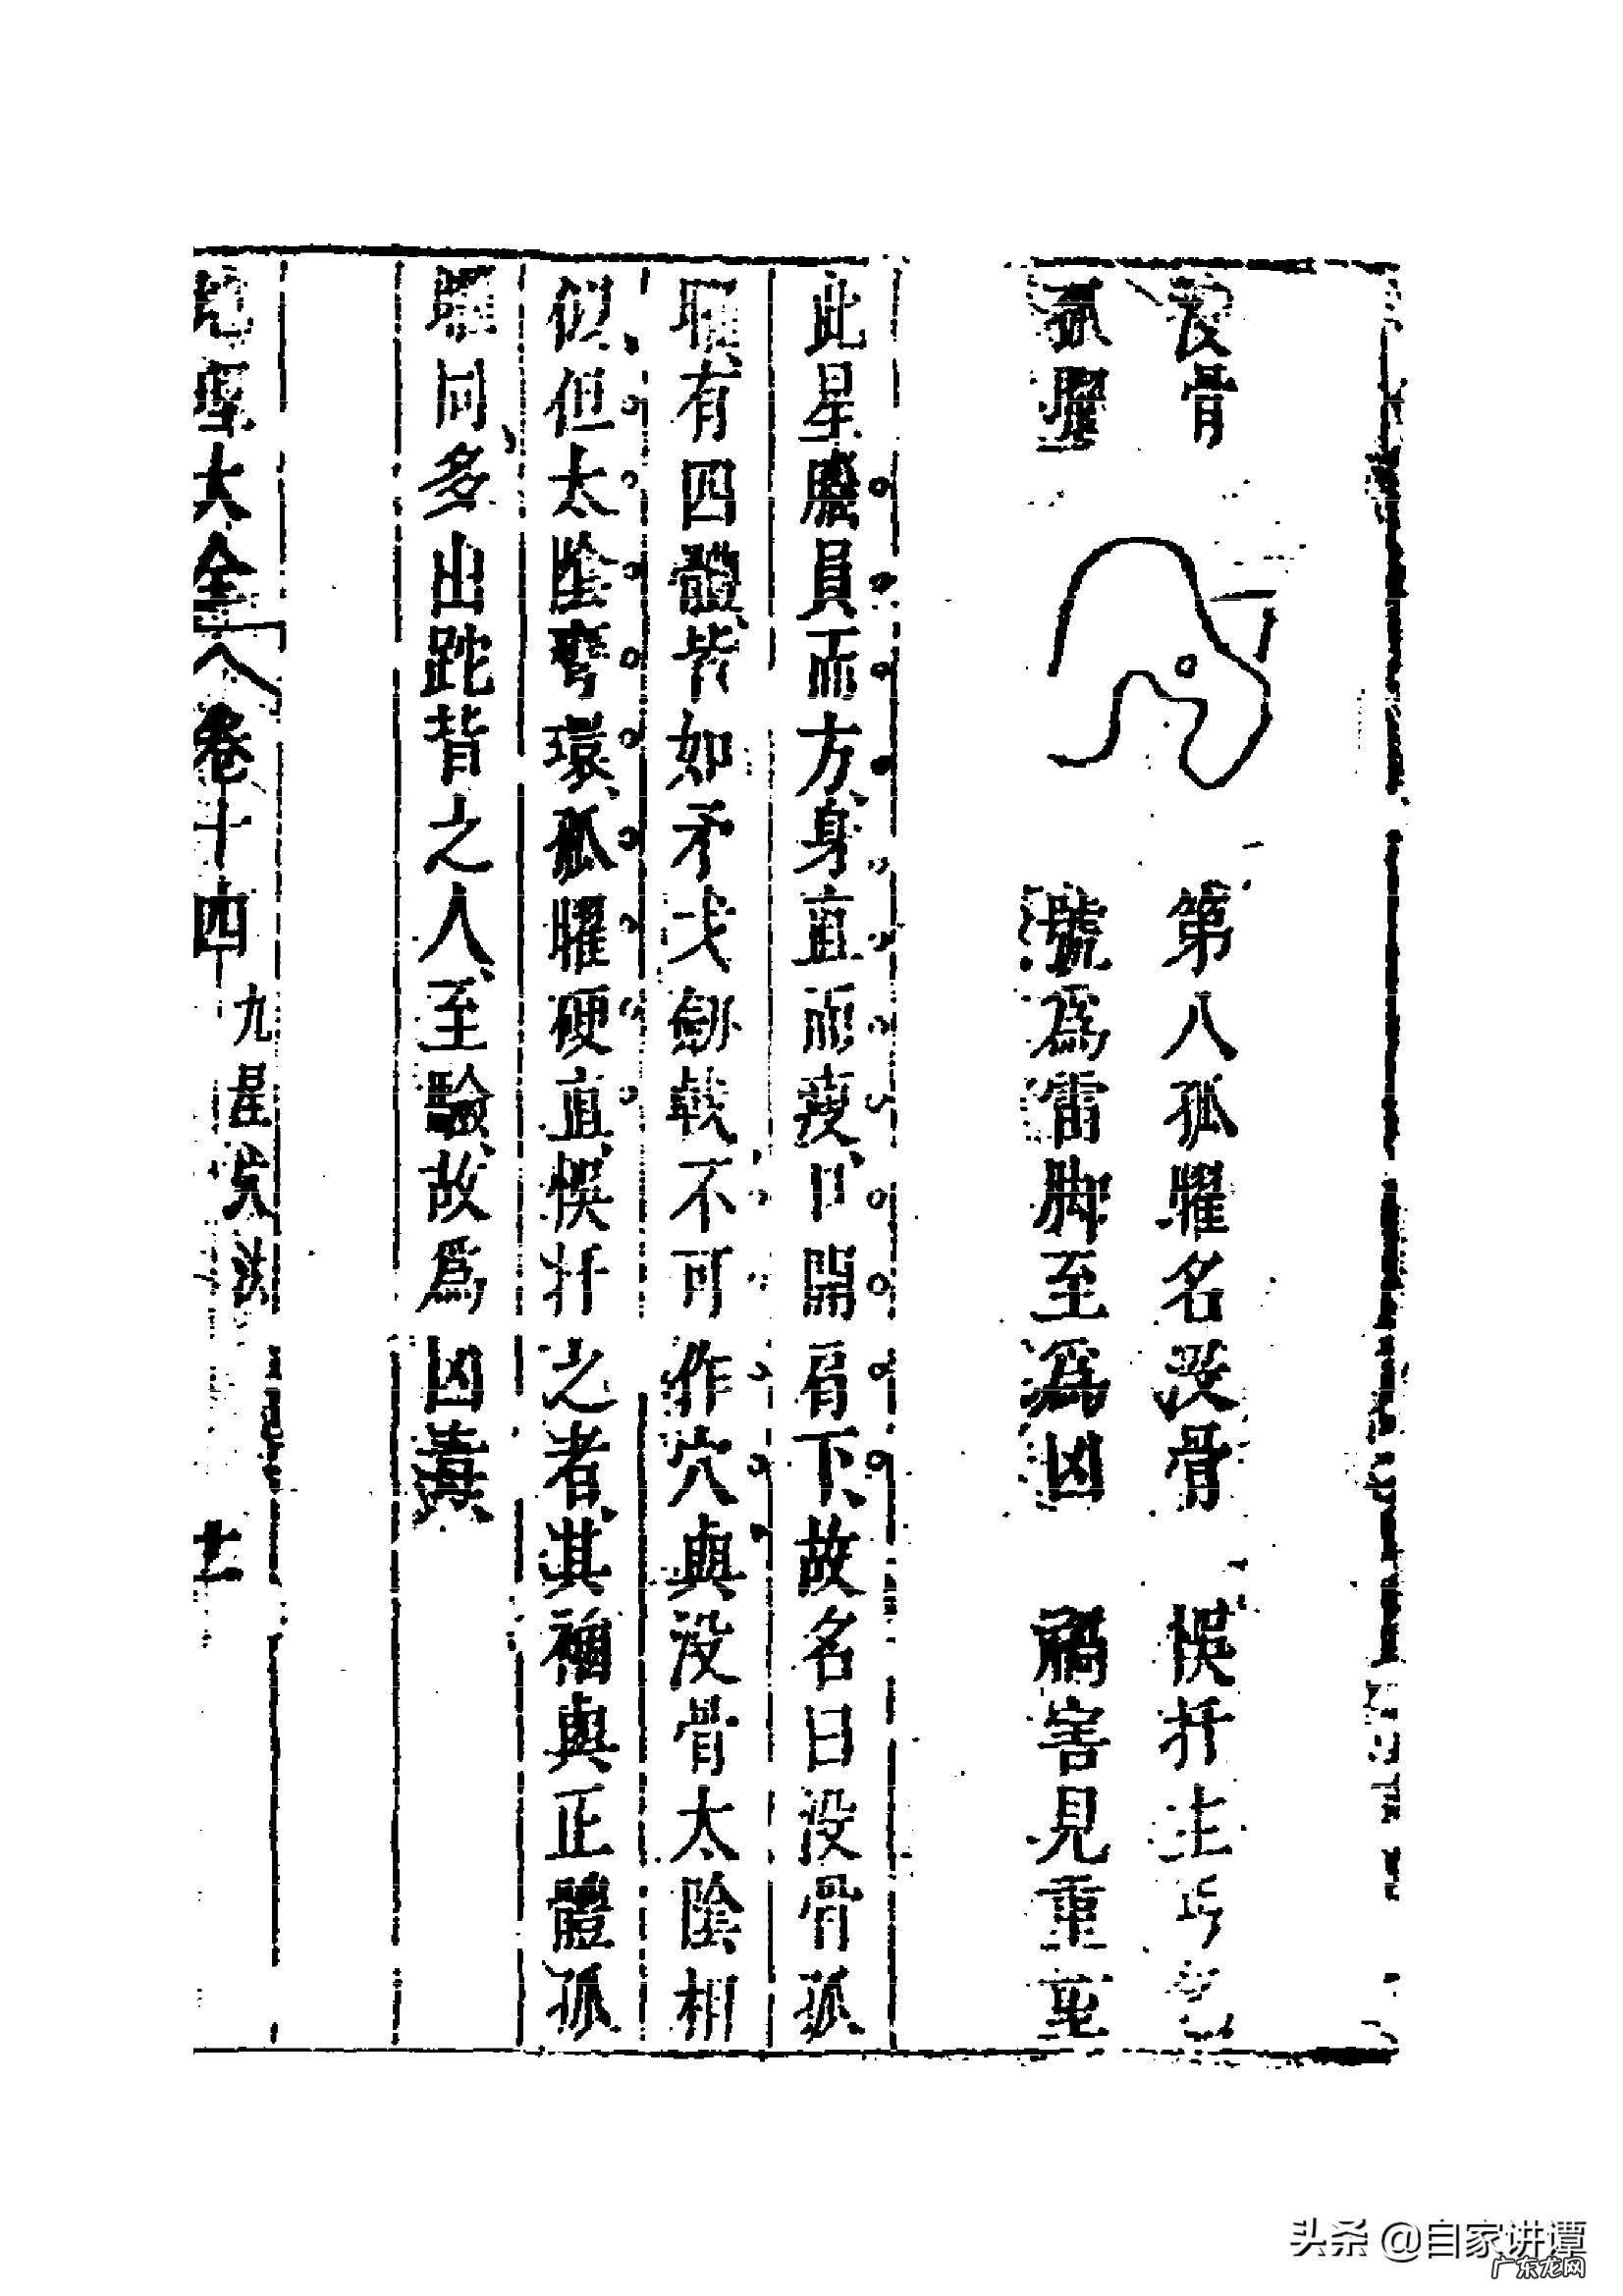 没骨
孤曜
第八孤曜名没骨
悞扦主丐
號為雷脚至為凶
禍害見重重
此星腦員而方身直而瘦口開肩下故名曰没骨孤
曜有四體皆如矛戈劒戟不可作穴與没骨太陰相
似但太陰彎環孤曜硬直悞扦之者其禍與正體孤
曜同多出跎背之人至驗故爲凶毒
地理大全 卷十四 九星 十一
头条 @自家讲谭
广东龙网